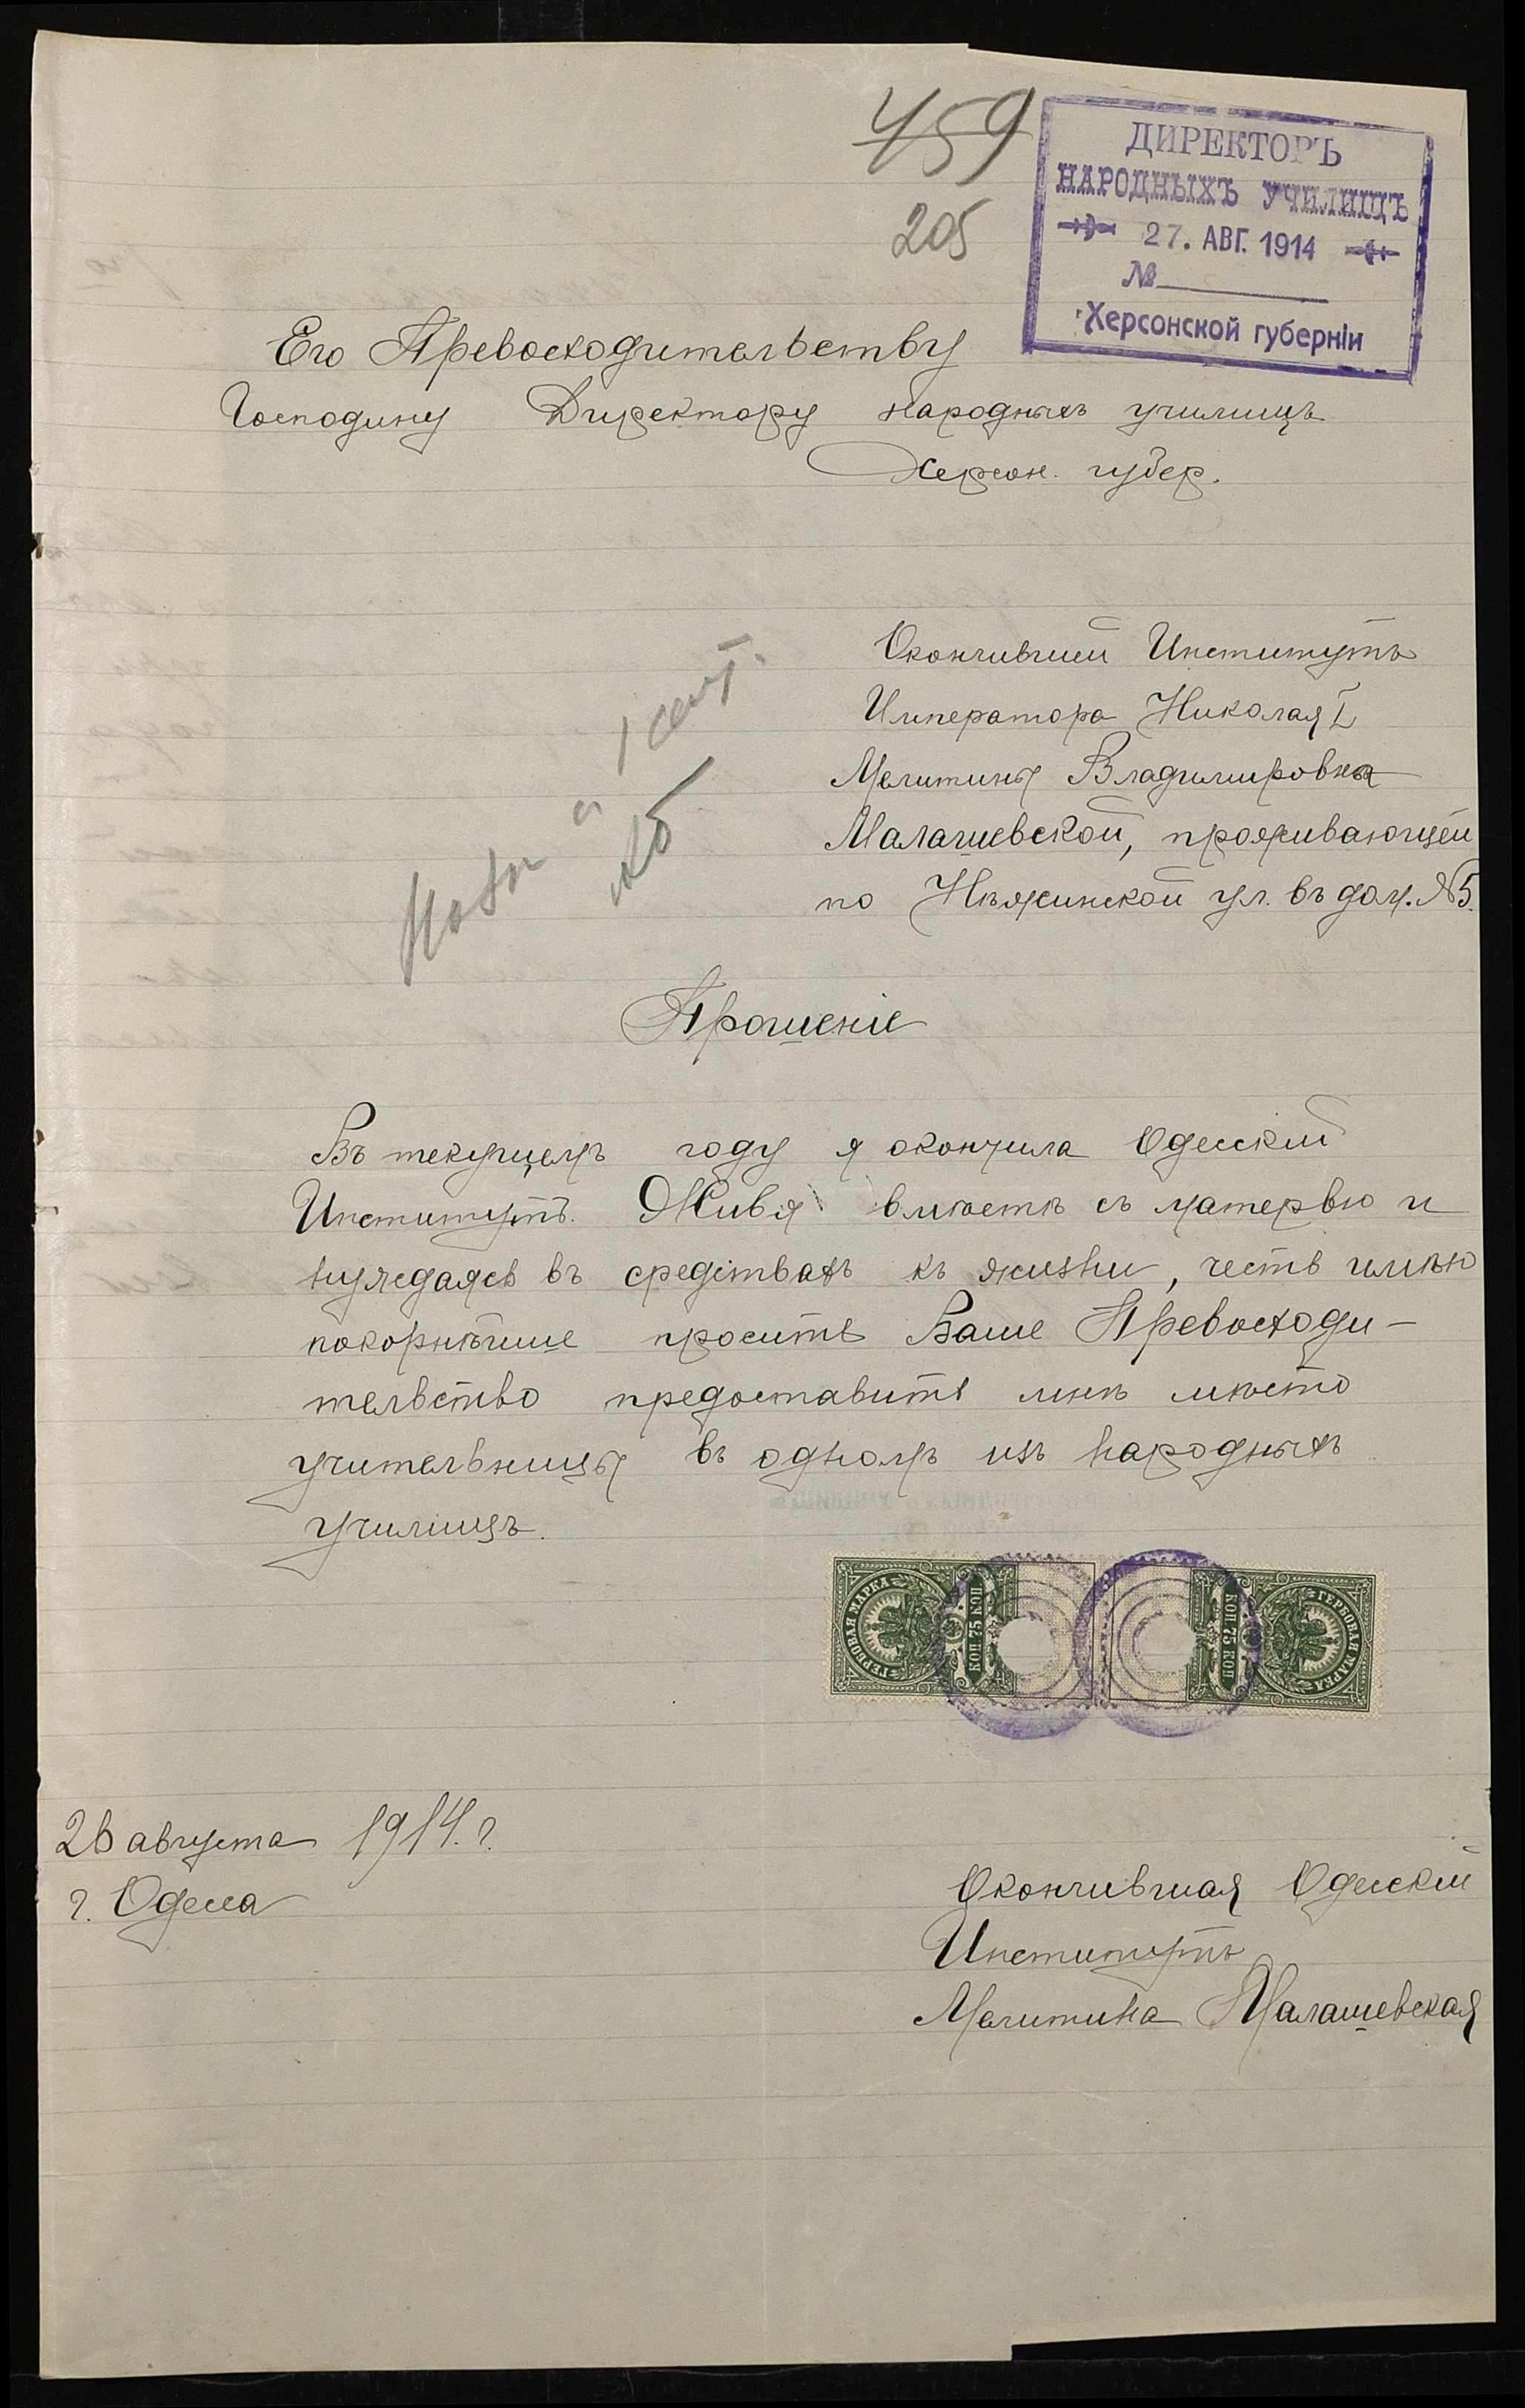 459
205
ДИРЕКТОРЪ
НАРОДНЫХЪ УЧИЛИЩЪ
27. АВГ. 1914
№
Херсонской губерніи
Его Превосходительству
Господину Директору народныхъ училищъ
Херсон. губер.
1 сент.
Окончившей Институтъ
Императора Николая I
Мелитины Владимировны
Малашевской, проживающей
по Нѣжинской ул. въ дом. №5.
Прошеніе
Въ текущемъ году я окончила Одесскій
Институтъ. Живя вмѣстѣ съ матерью и
нуждаясь въ средствахъ къ жизни, честь имѣю
покорнѣйше просить Ваше Превосходи-
тельство предоставить мнѣ мѣсто
учительницы въ одномъ изъ народныхъ
училищъ.
ГЕРБОВАЯ МАРКА КОП 75 КОП
КОП 75 КОП ГЕРБОВАЯ МАРКА
26 августа 1914 г.
г. Одесса
Окончившая Одесскій
Институтъ
Мелитина Малашевская